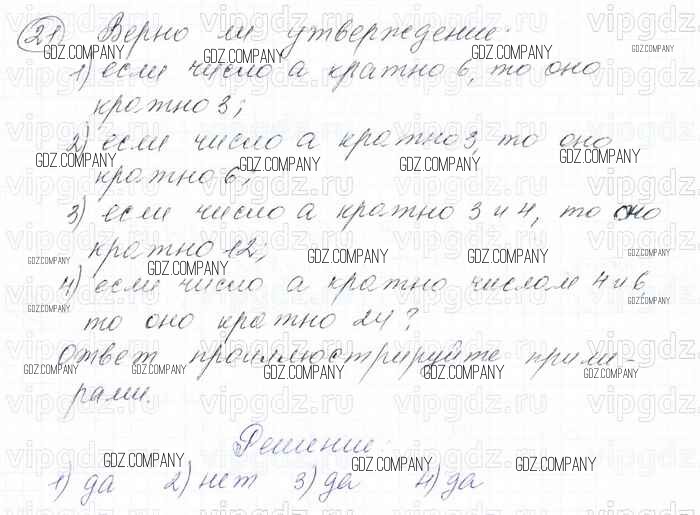 21) Верно ли утверждение:
1) если число a кратно 6, то оно
кратно 3;
2) если число a кратно 3, то оно
кратно 6;
3) если число a кратно 3 и 4, то оно
кратно 12;
4) если число a кратно числам 4 и 6,
то оно кратно 24?
Ответ проиллюстрируйте приме-
рами.
Решение:
1) да 2) нет 3) да 4) да